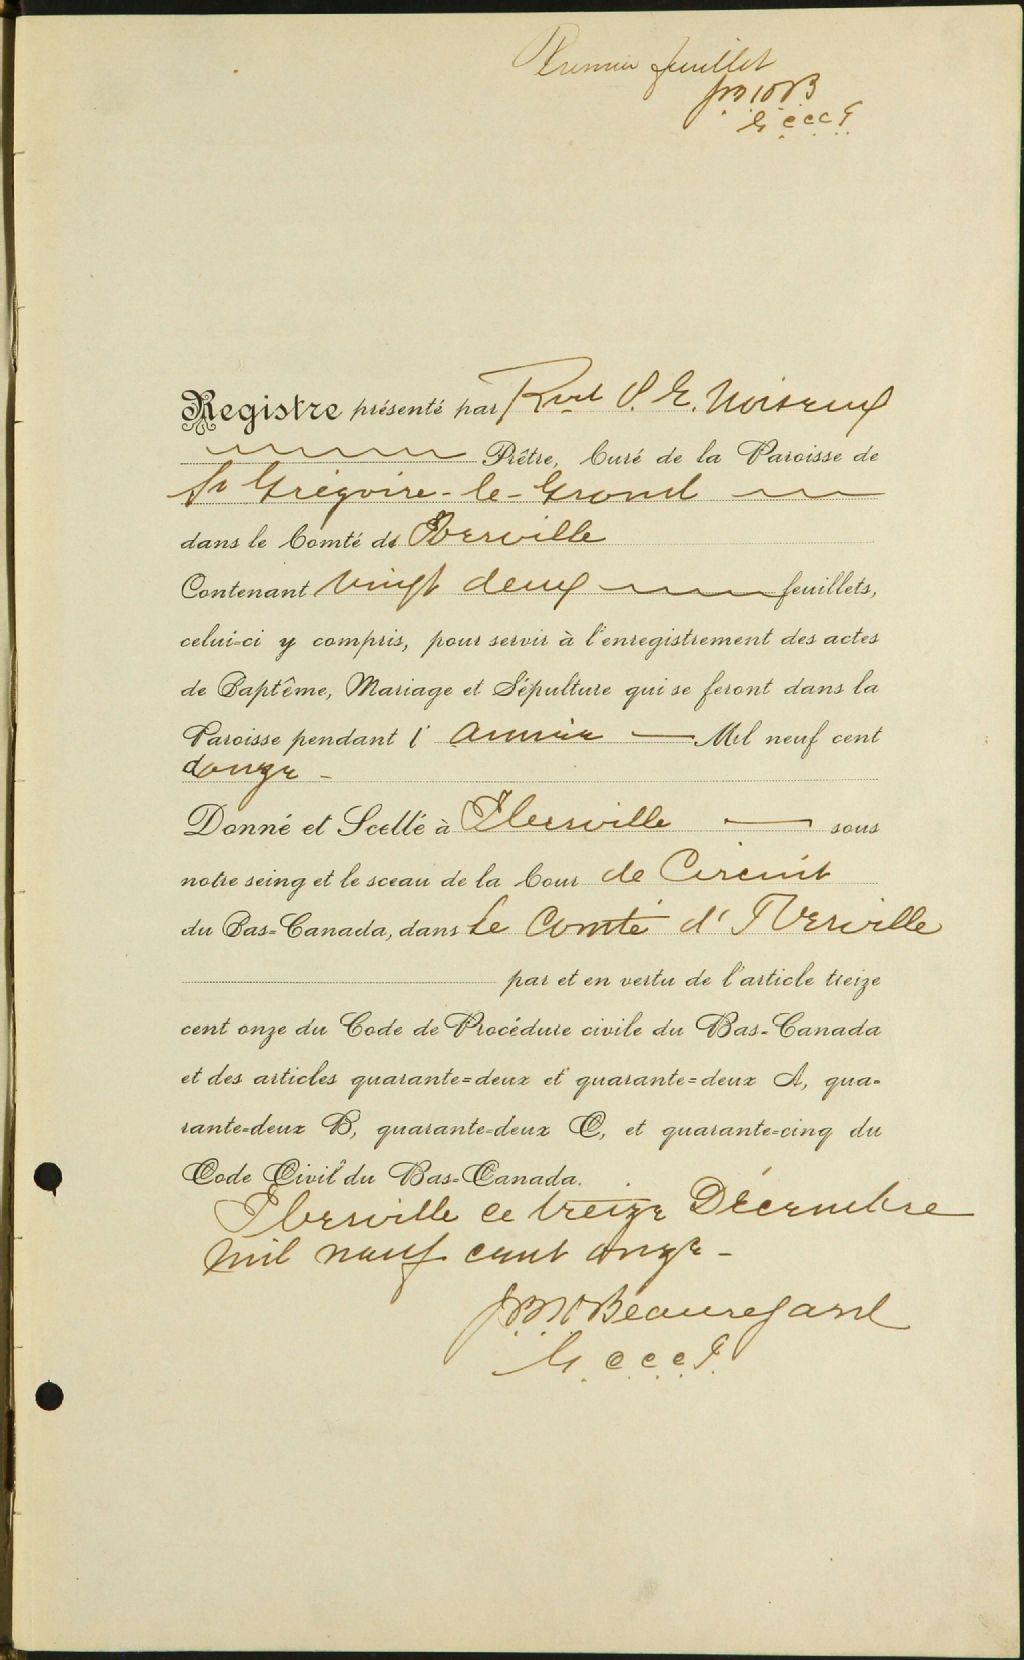 Premier feuillet
J M N B
G C C C I
Registre présenté par Rvd P. E. Noiseux
Prêtre, Curé de la Paroisse de
St Grégoire-le-Grand
dans le Comté de Iberville
Contenant vingt deux feuillets,
celui-ci y compris, pour servir à l'enregistrement des actes
de Baptême, Mariage et Sépulture qui se feront dans la
Paroisse pendant l'année — Mil neuf cent
douze -
Donné et Scellé à Iberville — sous
notre seing et le sceau de la Cour de Circuit
du Bas-Canada, dans Le Comté d'Iberville
par et en vertu de l'article treize
cent onze du Code de Procédure civile du Bas-Canada
et des articles quarante-deux et quarante-deux A, qua-
rante-deux B, quarante-deux C, et quarante-cinq du
Code Civil du Bas-Canada.
Iberville ce treize Décembre
mil neuf cent onze -
Beauregard
G. C. C. C. I.